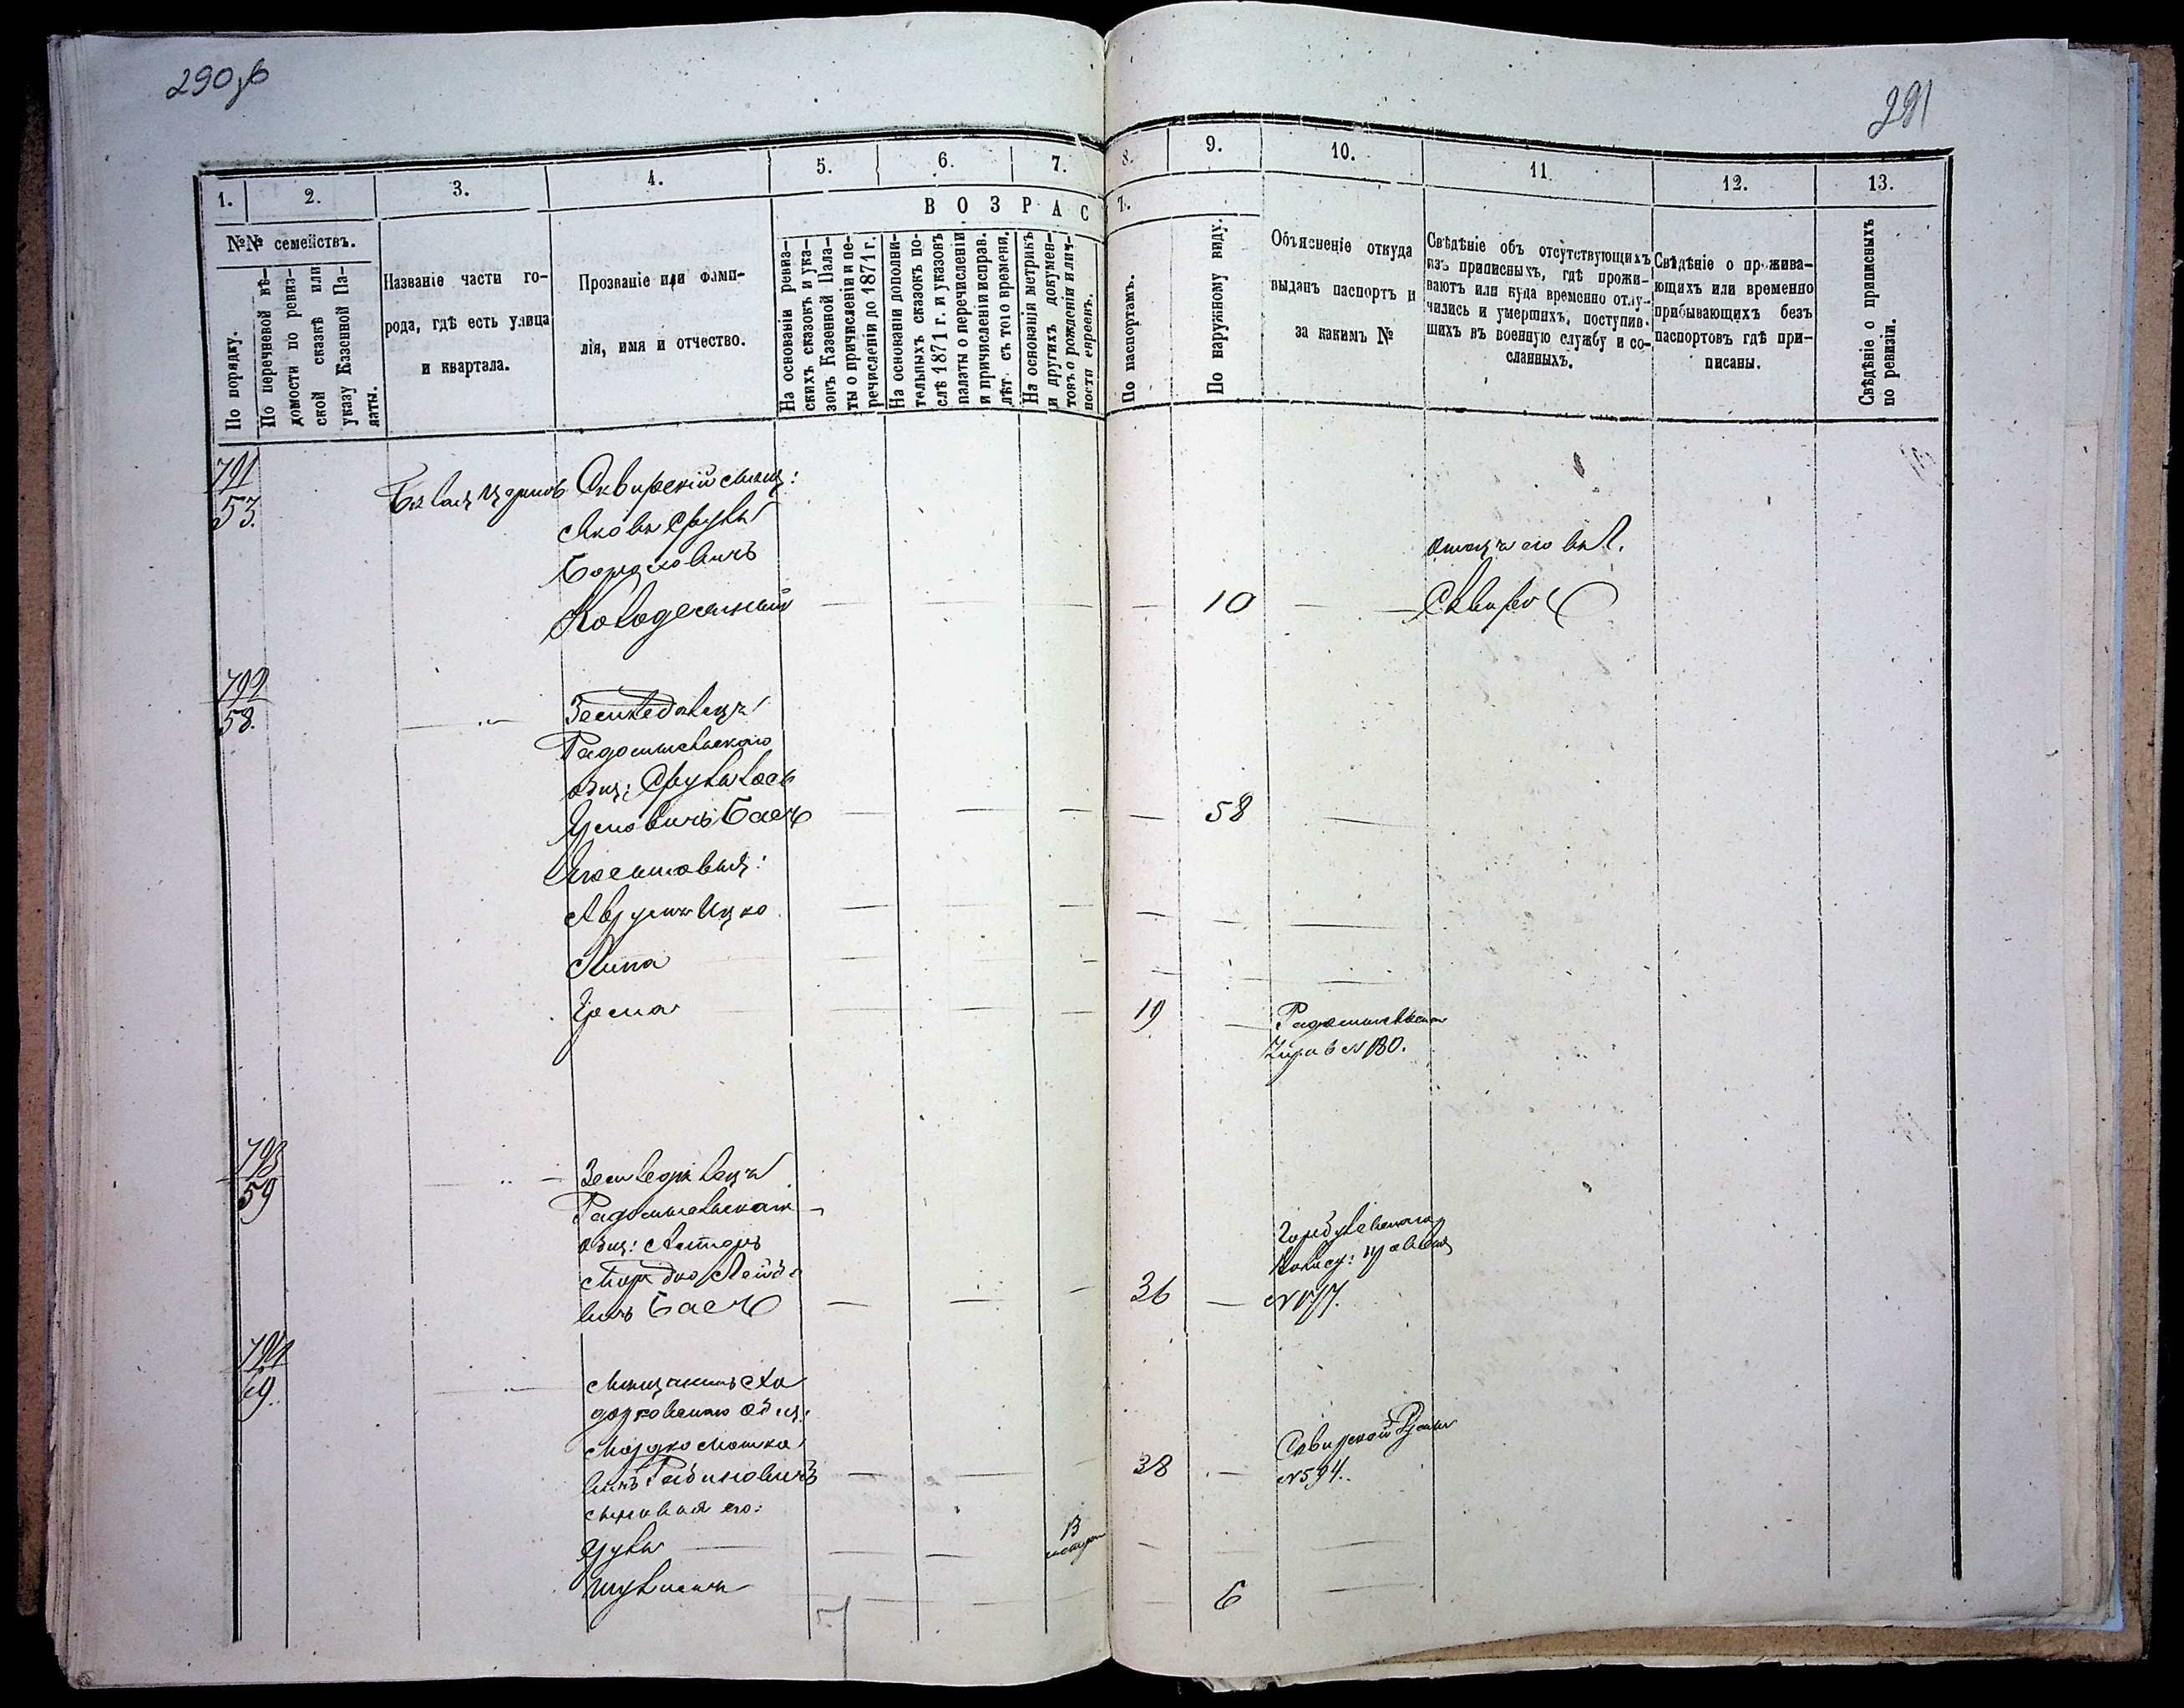 290 об
291
1.
2.
3.
4.
5.
6.
7.
8.
9.
10.
11.
12.
13.
ВОЗРАС
7.
№№ семействъ.
По порядку.
По перечневой вѣ-
домости по ревиз-
ской сказкѣ или
указу Казенной Па-
латы.
Названіе части го-
рода, гдѣ есть улица
и квартала.
Прозваніе или фами-
лія, имя и отчество.
На основаніи ревиз-
скихъ сказокъ и ука-
зокъ Казенной Пала-
ты о причисленіи и пе-
речисленіи до 1871 г.
На основаніи дополни-
тельныхъ сказокъ по-
слѣ 1871 г. и указовъ
палаты о перечисленіи
и причисленіи исправ.
лѣт. съ того времени.
На основаніи метрикъ
и другихъ докумен-
товъ о рожденіи и лич-
ности евреевъ.
По паспортамъ.
По наружному виду.
Объясненіе откуда
выданъ паспортъ и
за какимъ №
Свѣдѣніе объ отсутствующихъ
изъ приписныхъ, гдѣ прожи-
ваютъ или куда временно отлу-
чились и умершихъ, поступив-
шихъ въ военную службу и со-
сланныхъ.
Свѣдѣніе о прожива-
ющихъ или временно
прибывающихъ безъ
паспортовъ гдѣ при-
писаны.
Свѣдѣніе о приписныхъ
по ревизіи.
791
53.
Бѣлая Церковь
Сквирскій мѣщ:
Яковъ Сруль
Борохович
Колодезный
10
Отецъ его въ г.
Сквирѣ
792
58.
Земледѣлецъ
Радомысльскаго
общ: Сруль Іось
Хуновичъ Басъ
Сыновья:
Аврумъ Ицко
Липа
Хуна
58
19
Радомысльская
Управ № 180.
793
59
Земледѣлецъ
Радомысльскаго
общ:
Мордко Лейбо
вичъ Басъ
36
Горбулевскаго
Волос: правлен
№ 177.
794
69.
Мѣщанинъ Хо
дорковскаго общ:
Мордко Мошко
вичъ Рабиновичъ
сыновья его:
Сруль
Шулимъ
13
38
6
Сквирской
№ 594.